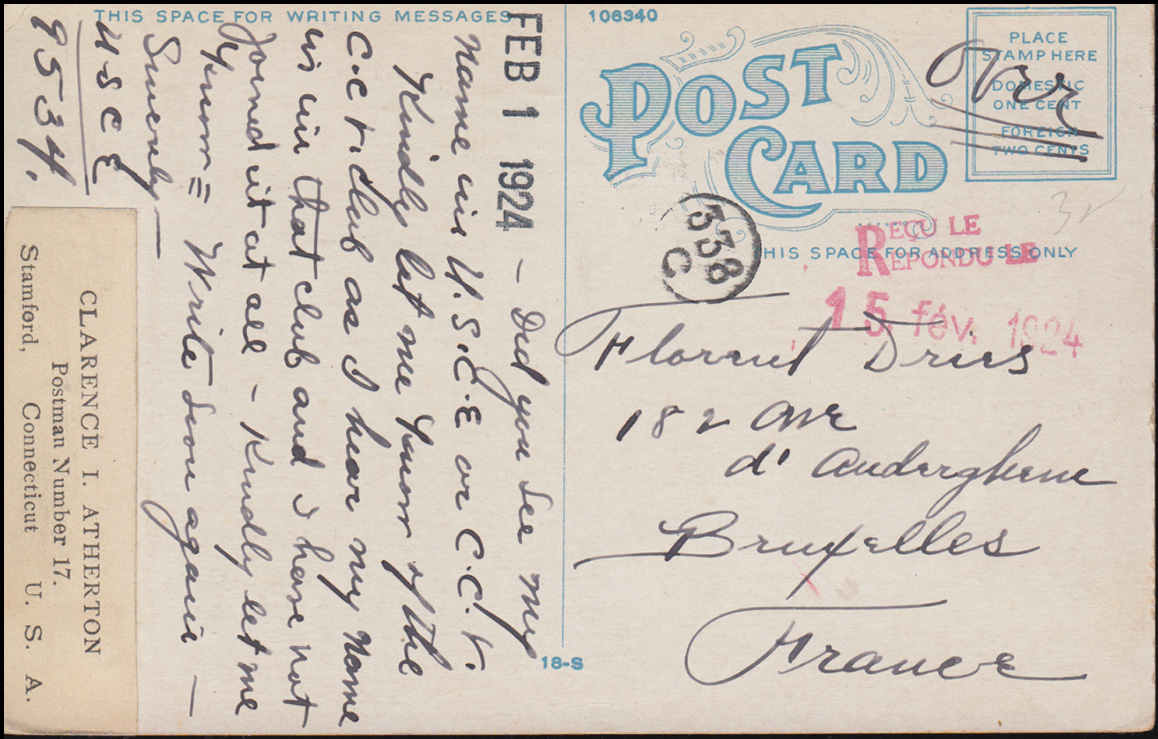 THIS SPACE FOR WRITING MESSAGES
FEB 1 1924 — Did you see my
name in U.S.C.E or C.C.t.
Kindly let me know of the
C.C.t. club as I hear my name
is in that club and I have not
joined it at all - Kindly let me
know = Write soon again —
Sincerely —
U S C E
9534.
CLARENCE I. ATHERTON
Postman Number 17.
Stamford, Connecticut U. S. A.
106340
POST
CARD
PLACE
STAMP HERE
DOMESTIC
ONE CENT
FOREIGN
TWO CENTS
Over
338
C
REÇU LE
REPONDU LE
THIS SPACE FOR ADDRESS ONLY
15 fév. 1924
Florent Dries
182 Ave
d' Auderghene
Bruxelles
France
18-S